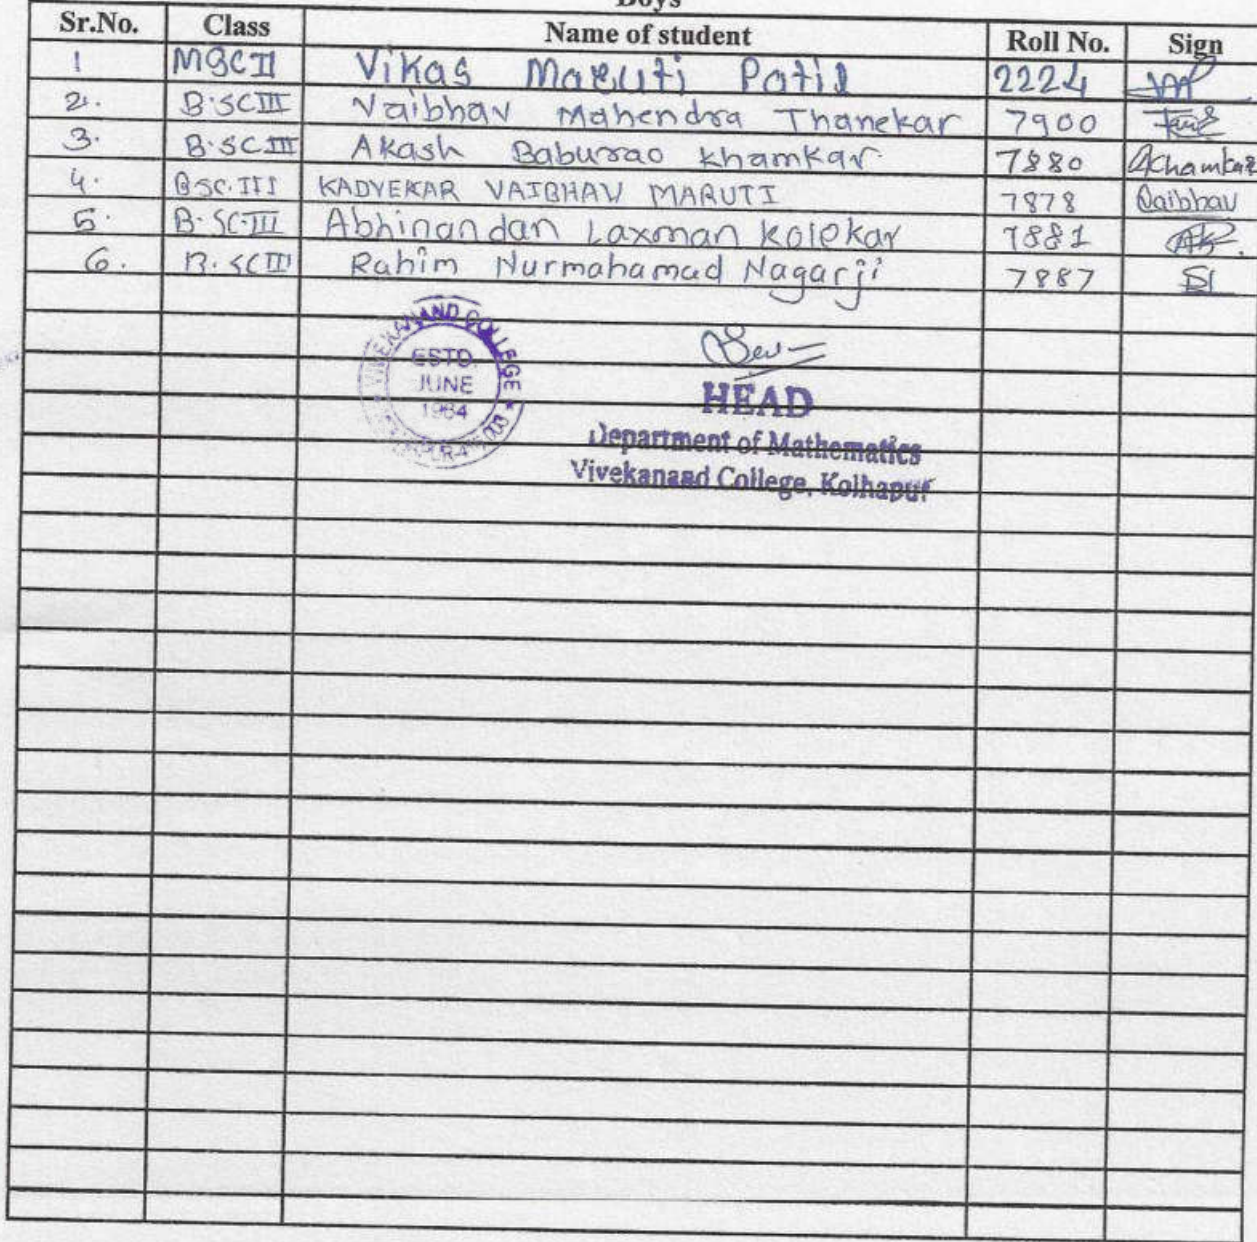 Boys
Sr.No. Class Name of student Roll No. Sign
1 MSC II Vikas Maruti Patil 2224
2. B.SC III Vaibhav Mahendra Thanekar 7900
3. B.SC III Akash Baburao Khamkar 7880 AKhamkar
4. BSC.III KADYEKAR VAIBHAV MARUTI 7878 Vaibhav
5. B.SC.III Abhinandan Laxman Kolekar 7881 AK
6. B.SC III Rahim Nurmahamad Nagarji 7887
VIVEKANAND COLLEGE
ESTD.
JUNE
1964
HEAD
Department of Mathematics
Vivekanand College, Kolhapur